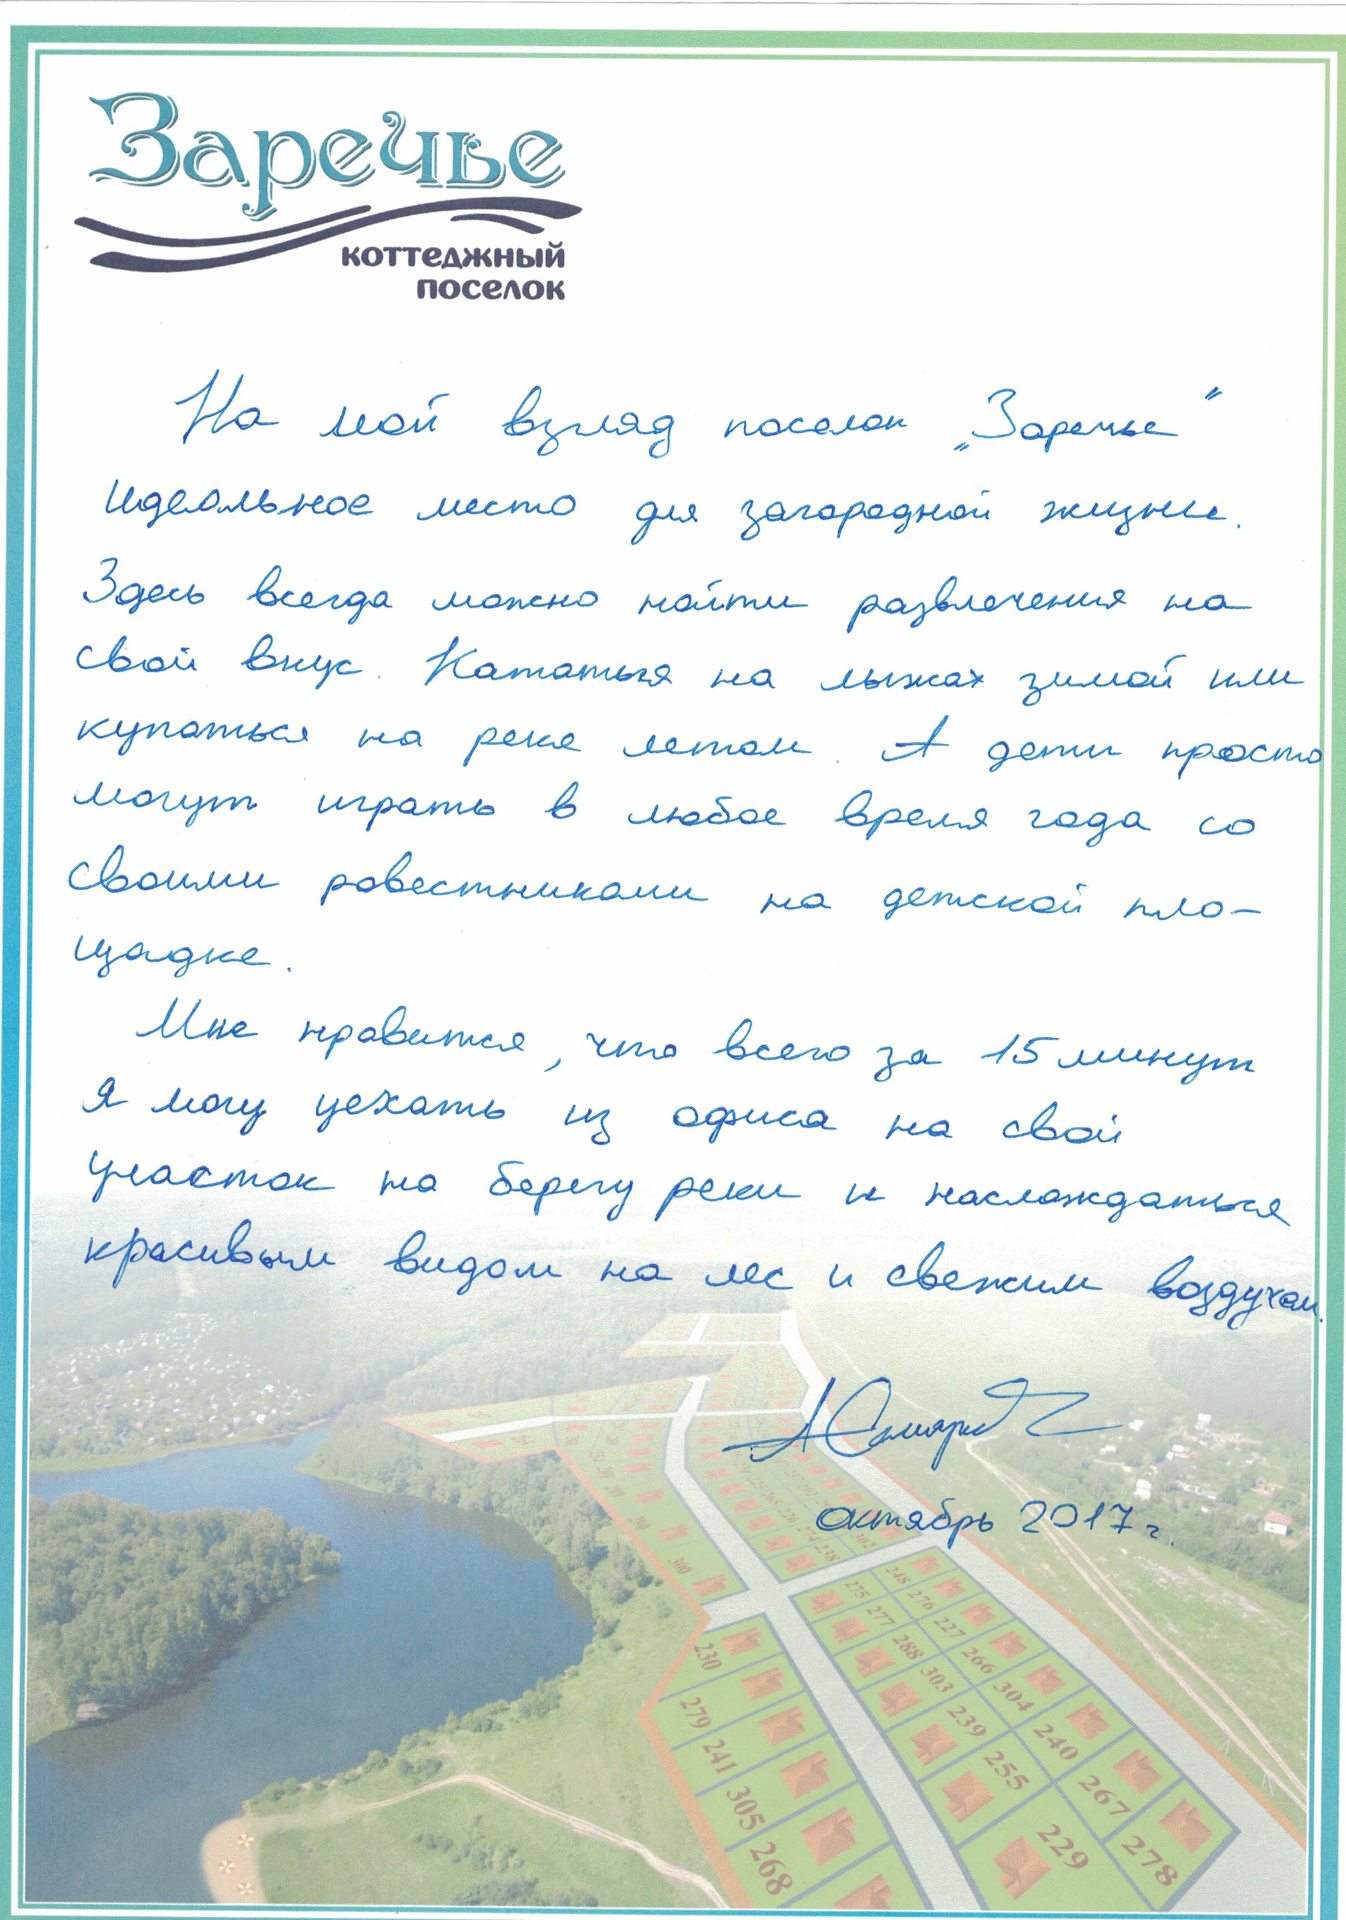 Заречье
коттеджный
поселок
На мой взгляд поселок „Заречье"
идеальное место для загородной жизни.
Здесь всегда можно найти развлечения на
свой вкус. Кататься на лыжах зимой или
купаться на реке летом. А дети просто
могут играть в любое время года со
своими ровестниками на детской пло-
щадке.
Мне нравится, что всего за 15 минут
я могу уехать из офиса на свой
участок на берегу реки и наслаждаться
красивым видом на лес и свежим воздухом.
октябрь 2017 г.
300
230
279
241
305
268
275
277
288
303
239
255
229
248
276
227
266
304
240
267
278